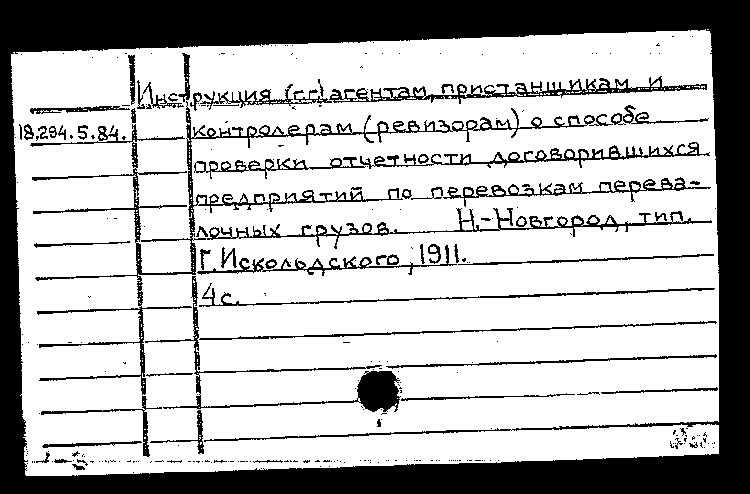 Инструкция (г.г) агентам, пристанщикам и
18,294.5.84. контролерам (ревизорам) о способе
проверки отчетности договорившихся
предприятий по перевозкам перева-
лочных грузов. Н.-Новгород, тип.
Г. Искольдского, 1911.
4 с.